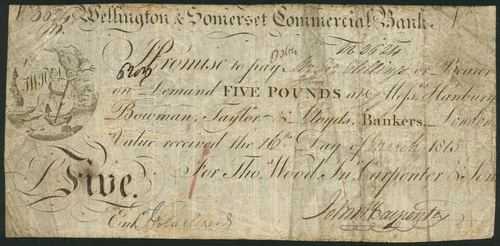 Wellington & Somerset Commercial Bank.
I Promise to pay Mr or Bearer
on Demand FIVE POUNDS at Mess.rs Hanbury
Bowman, Taylor & Lloyds, Bankers London
Value received the 16th Day of March 1815
For Tho.s Wood, Jn Carpenter & Son
Five.
Ent.d
John Carpenter